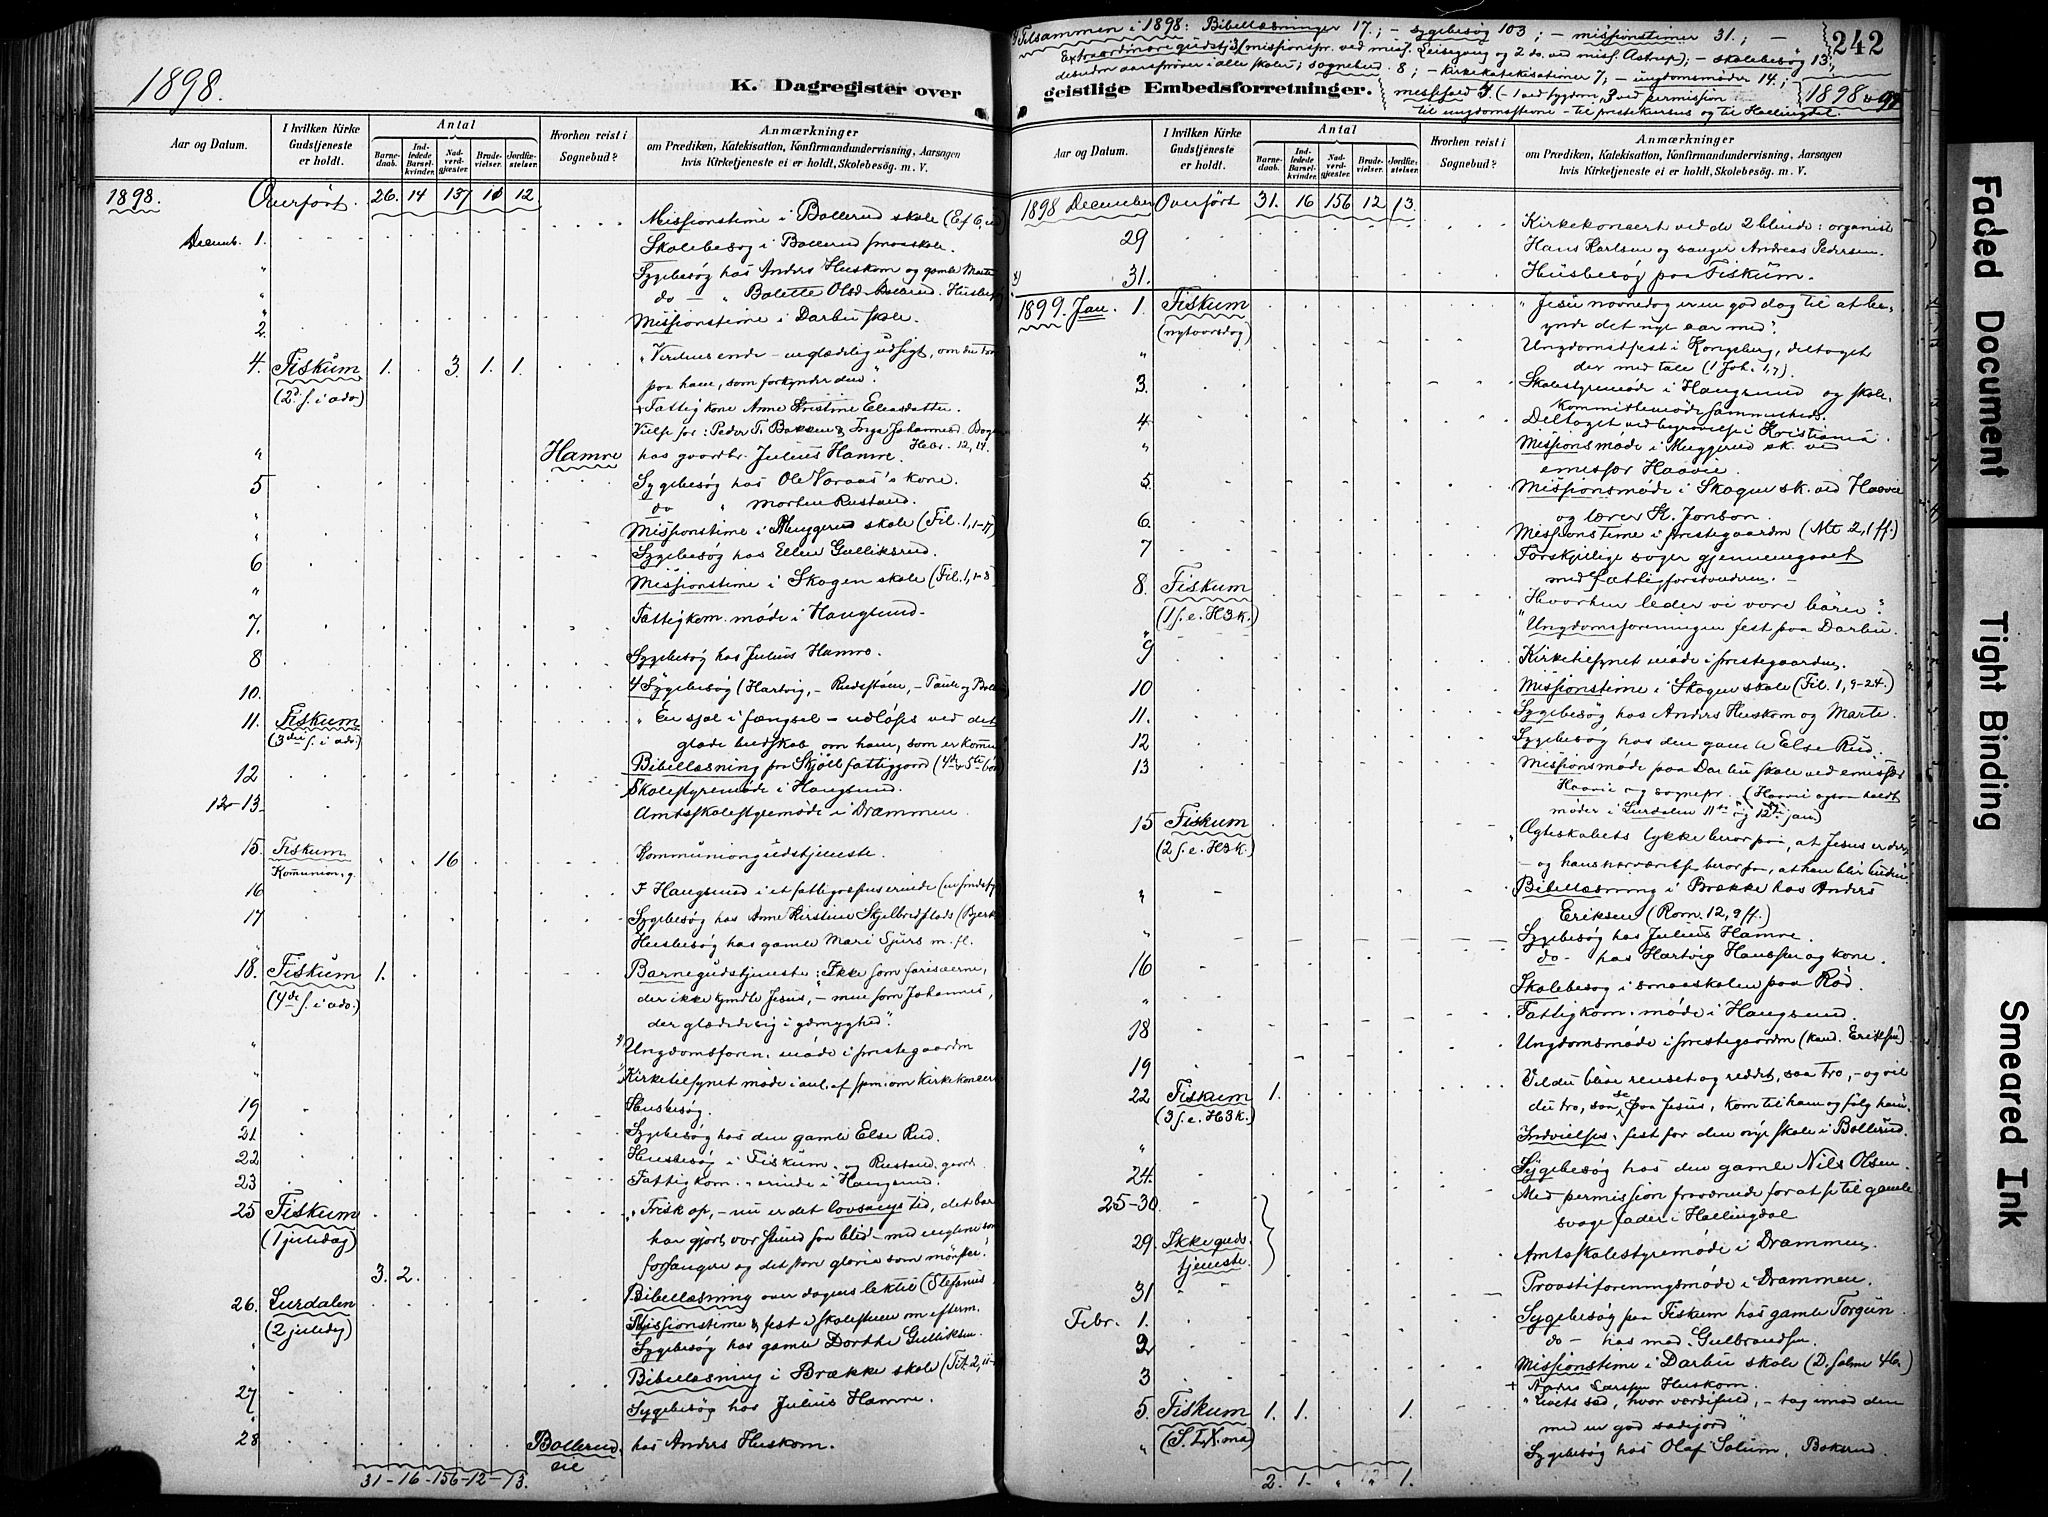 1898.
K. Dagregister over
Aar og Datum.
I hvilken Kirke Gudstjeneste er holdt.
Antal
Barnedaab.
Indledede Barselkvinder.
Nadverdgjæster.
Brudevielser.
Jordfæstelser.
Hvorhen reist i Sognebud?
Anmærkninger
om Prædiken, Katekisation, Konfirmandundervisning, Aarsagen
hvis Kirketjeneste ei er holdt, Skolebesøg. m. V.
1898. Overført. 26. 14 137 11 12
Decemb. 1. Missionstime i Bollerud skole (Ef 6,
Skolebesøg i Bollerud smaaskole.
" Sygebesøg hos Anders Huskom og gamle Marte
" do — " Bolette Olsd. Bollerud. Husbesøg
2. Missionstime i Darbu skole.
4. Fiskum 1. 3. 1. 1. "Verdens ende – en glædelig udsigt, om du tror
(2d. s. i adv) paa ham, som forkynder den".
+ Fattig kone Anne Kristine Eliasdatter.
Vielse for: Peder T. Bakken & Inga Johannesd.
" Hamre hos gaardbr. Julius Hamre. Hebr. 12, 14.
5 Sygebesøg hos Ole Voraas's kone.
" do " Morten Rustand.
" Missionstime i Muggerud skole (Fil. 1, 1-17)
6 Sygebesøg hos Ellen Gulliksrud.
" Missionstime i Skogen skole (Fil. 1, 1-8)
7. Fattigkom. møde i Haugsund.
8 Sygebesøg hos Julius Hamre.
10. 4 Sygebesøg (Hartvig, –
11. Fiskum "En sjæl i fængsel – udløses ved det
(3die s. i adv.) glade budskab om ham, som er kommen"
12 Bibellæsning paa Skjøll fattiggaard (4de & 5te bøn)
" Skolestyremøde i Haugsund.
12-13. Amtsskolestyremøde i Drammen.
15. Fiskum " " 16 Kommuniongudstjeneste.
Komunion. g.
16 I Haugsund i et fattigvæsens erinde
17 Sygebesøg hos Anne Kirstine Skjelbredflads
" Husbesøg hos gamle Mari Sjurs m. fl.
18. Fiskum 1. Barnegudstjeneste: "Ikke som fariseerne,
(4de s. i adv.) der ikke kjendte Jesus, – men som Johannes,
der glædede sig i ydmyghed".
" Ungdomsforen. møde i prestegaarden
" Kirketilsynet møde i anl. af spm. om Kirkekoncert
19 Husbesøg.
21 Sygebesøg hos den gamle Else Rud.
22 Husbesøg i Fiskum og Rustand gaard.
23 Fattigkom. erinde i Haugsund.
25 Fiskum "Frisk op, – nu er det lovsangs tid, det barn
(1 juledag) har gjort vor stund saa blid – med englene som
forsangere og det store gloria som mønster"
3. 2.
26. Lurdalen Bibellæsning over dagens lektie (Stefanus)
(2 juledag) Missionstime & fest i skolestuen om efterm.
" Sygebesøg hos gamle Dorthe Gulliksen.
" Bibellæsning i Brække skole (Tit. 2, 11-
27 Sygebesøg hos Julius Hamre.
28 Bollerud eie hos Anders Huskom.
31 - 16 - 156 - 12 - 13.
Tilsammen i 1898: Bibellæsninger 17; – sygebesøg 103; – missionstimer 31; –
Extraordinære gudstj. (missionspr. ved miss. Leisegang og 2 do. ved miss. Astrup); – skolebesøg 13;
desuden aarsprøver i alle skoler; sognebud. 8; – kirkekatekisationer 7; – ungdomsmøder 14;
242
geistlige Embedsforretninger.
messefald 4. (– 1 ved sygdom, 3 ved permission
til ungdomsstevne – til prestekursus og til Hallingdal.
1898 & 99
Aar og Datum.
I hvilken Kirke Gudstjeneste er holdt.
Antal
Barnedaab.
Indledede Barselkvinder.
Nadverdgjæster.
Brudevielser.
Jordfæstelser.
Hvorhen reist i Sognebud?
Anmærkninger
om Prædiken, Katekisation, Konfirmandundervisning, Aarsagen
hvis Kirketjeneste ei er holdt, Skolebesøg. m. V.
1898 December Overført 31. 16 156 12 13.
29 Kirkekoncert ved de 2 blinde: organist
Hans Karlsen og sanger Andreas Pedersen.
31. Husbesøg paa Fiskum.
1899. Jan. 1. Fiskum "Jesu navnedag er en god dag til at be-
(nytaarsdag) gynde det nye aar med".
" Ungdomsfest i Kongsberg, deltaget
der med tale (1 Joh. 1,7).
3. Skolestyremøde i Haugsund og skole-
kommissionsmøde sammesteds.
4 Deltaget ved bymøde i Kristiania.
" Missionsmøde i Muggerud sk. ved
emissær Haavie.
5 Missionsmøde i Skogen sk. ved Haavie
og lærer H. Jonson.
6. Missionstime i prestegaarden (Mt. 2, 1 ff.)
7 Forskjellige sager gjennemgaaet
med fattigforstanderen. –
8. Fiskum "Hvorhen leder vi vore børn".
(1 s. e. H3k.)
" Ungdomsforeningen fest paa Darbu.
9 Kirketilsynet møde i prestegaarden.
10 Missionstime i Skogen skole (Fil. 1, 9-24.)
11. Sygebesøg hos Anders Huskom og Marte.
12 Sygebesøg hos den gamle Else Rud.
13 Missionsmøde paa Darbu skole ved emissær
Haavie og sognepr. (Haavie ogsaa holdt
møder i Lurdalen 11te og 12te jan)
15 Fiskum "Ægteskabets lykke beror paa, at Jesus er der,
(2 s. e. H3k.) – og hans nærværelse beror paa, at han blir buden"
" Bibellæsning i Brække hos Anders
Eriksen (Rom. 12, 9 ff.)
" Sygebesøg hos Julius Hamre.
16 do – hos Hartvig Hanssen og kone.
" Skolebesøg i smaaskolen paa Rød.
18 Fattigkom. møde i Haugsund.
19 Ungdomsmøde i prestegaarden (kand. Eriksen)
22 Fiskum 1. Vil du blive renset og reddet, saa tro, – og vil
(3 s. e. H3k.) du tro, saa se paa Jesus, kom til ham og følg ham.
" Indvielses-fest for den nye skole i Bollerud.
24. Sygebesøg hos den gamle Nils Olsen.
25-30 Med permission fraværende for at se til gamle
svage fader i Hallingdal
29. Ikke guds-
tjeneste.
Amtsskolestyremøde i Drammen
31 Provstiforeningsmøde i Drammen.
Febr. 1. Sygebesøg paa Fiskum hos gamle Torgun.
2 do – hos mad. Gulbrandsen
3 Missionstime i Darbu skole (D. salme 46.)
+ Anders Larssen Huskom.
5. Fiskum 1. 1. 1. "Livets sæd, hvor værdifuld, – tag imod den
(S. LX.ma) med en god sædejord"
" Sygebesøg hos Olaf Solum, Bakerud
2. 1. " " 1.
Faded Document
Tight Binding
Smeared Ink